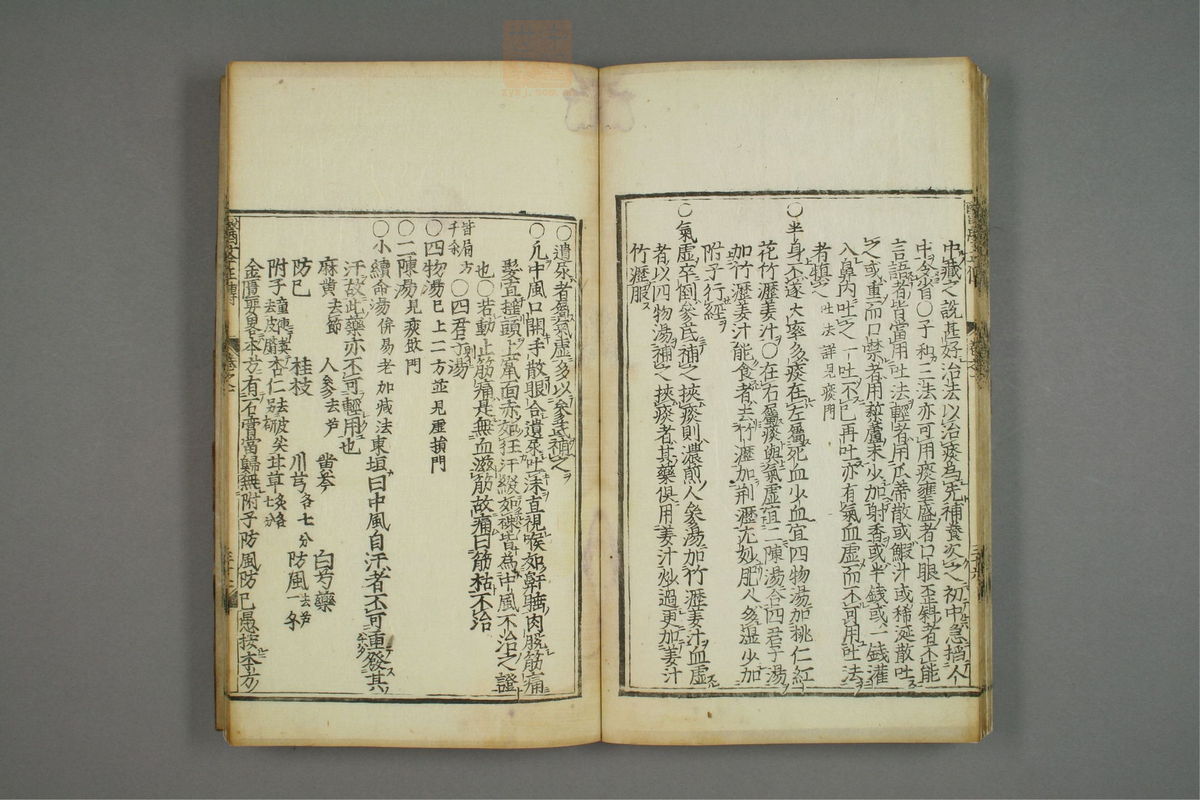 中藏之說甚好治法以治痰爲先補養次之初中急掐人
中令省〇子和三法亦可用痰壅盛者口眼歪斜者不能
言語者皆當用吐法輕者用瓜蒂散或蝦汁或稀涎散吐
之或重而口噤者用藜蘆末少加射香或半錢或一錢灌
入鼻內吐之一吐不已再吐亦有氣血虛而不可用吐法
者慎之吐法詳見痰門
〇半身不遂大率多痰在左屬死血少血宜四物湯加桃仁紅
花竹瀝姜汁〇在右屬痰與氣虛宜二陳湯合四君子湯
加竹瀝姜汁能食者去竹瀝加荆瀝尤妙肥人多湿少加
附子行經
〇氣虛卒倒參芪補之挾痰則濃煎人參湯加竹瀝姜汁血虛
者以四物湯補之挾痰者其藥俱用姜汁炒過更加姜汁
竹瀝服
〇遺尿者屬氣虛多以參芪補之
〇凡中風口開手散眼合遺尿吐沫直視喉如鼾睡肉脫筋痛
髮直搖頭上竄面赤如狂汗綴如珠皆爲中風不治之證
也〇若動止筋痛是無血滋筋故痛曰筋枯不治
皆局方
千余〇四君子湯
〇四物湯已上二方並見虛損門
〇二陳湯見痰飮門
〇小續命湯倂易老加减法東垣曰中風自汗者不可重發其
汗故此藥亦不可輕用也
麻黃去節 人參去芦 黄芩 白芍藥
防已 桂枝 川芎各七分 防風一去芦
附子去皮 杏仁 甘草炙各七分
金匱要畧本方有石膏當歸無附子防風防已愚按本方